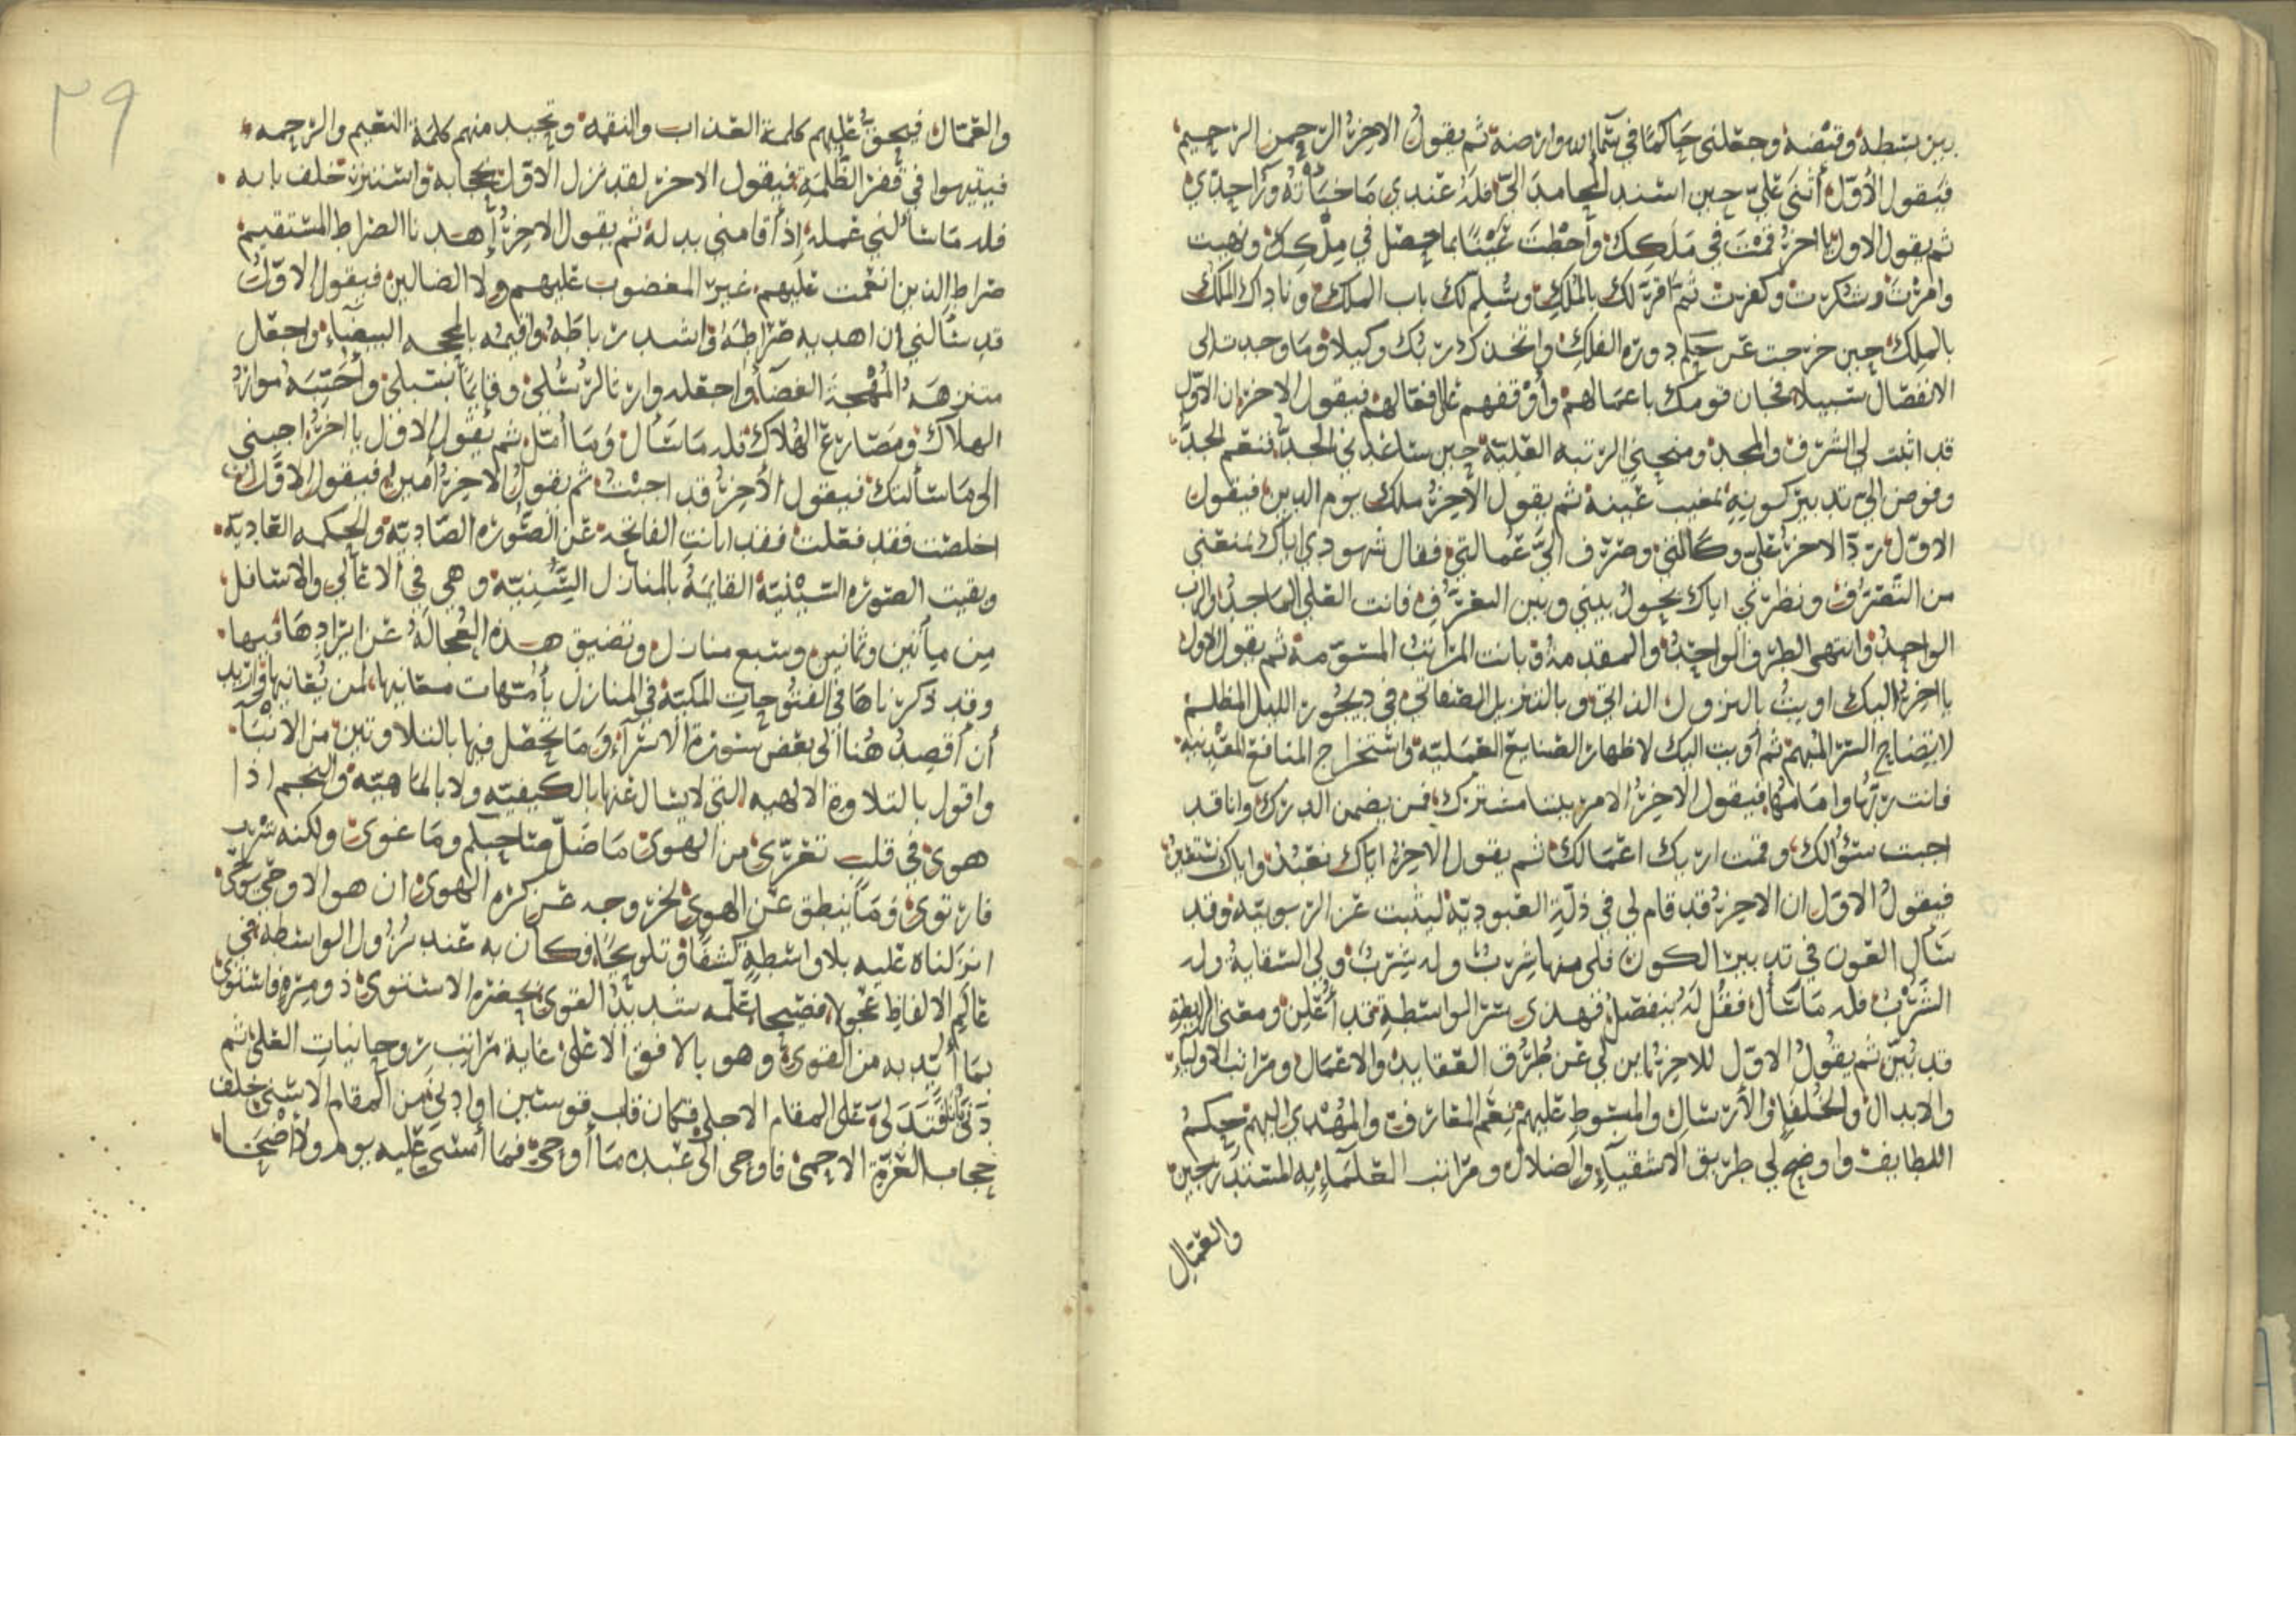 بين بسطه وقبضه وجعلني حاكما في سمايه وارضه ثم يقول الاخر الرحمن الرحيم
فيقول الأول أثنى علي حين اسند المحامد الي فله عندي ما خبأته وراحدي
ثم يقول الاول يا اخر قمت في ملكك وأحطت عينا بما حصل في ملكك ونهيت
وامرت وشكرت وكفرت ثم أقر لك بالملك وسلم لك باب الملك وناداك الملك
بالملك حين خرجت عن حكم دورة الفلك واتخذك ربك وكيلا وما وجدت الى
الانفصال سبيلا فخان قومك باعمالهم وأوقفهم على افعالهم فيقول الاخر ان الاول
قد اثبت لي الشرف والمجد ومنحني الرتبه العلية حين ساعدني الجد فنعم الجد
وفوض الي تدبير كونه بمغيب عينه ثم يقول الأخر ملك يوم الدين فيقول
الاول رد الاخر علي وكالتي وصرف الي عمالتي فقال شهودي اياك يمنعني
من التصرف ونظري اياك يحول بيني وبين التعرف فانت العلي الماجد والرب
الواحد وانتهى الطرف الواحد والمقدمة وبانت المراتب المسومة ثم يقول الاول
يا اخر اليك اويت بالنزول الذاتي وبالتنزيل الصفاتي في ديجور الليل المظلم
لايضاح السر المبهم ثم أويت اليك لاظهار الصنايع العملية واستخراج المنافع المعدنية
فانت ربها وامامها فيقول الاخر الامر بيننا مشترك فمن يضمن الدرك وانا قد
اجبت سؤالك وقمت اريك اعمالك ثم يقول الاخر اياك نعبد واياك نستعين
فيقول الاول ان الاخر قد قام لي في ذلة العبودية ليثبت عن الربوبية وقد
سأل العون في تدبير الكون فلي منها شرب وله شرب ولي السقاية وله
الشرب فله ما سأل فقل له ينفصل فهذي ستر الواسطة قد أعلن ومعنى الرابطة
قد بين ثم يقول الاول للاخر ابن لي عن طرق العقايد والاعمال ومراتب الاولياء
والابدال والخلفا والأرسال والمبسوط عليهم نعم المعارف والمهدي اليهم حكم
اللطايف واوضح لي طريق الاشقياء والضلال ومراتب العلماء به المستدرجين
والعمال
٣٩
والعمال فيحق عليهم كلمة العذاب والنقمه وتحيد منهم كلمة النعيم والرحمه
فيتيهوا في قفر الظلمة فيقول الاخر لقد نزل الاول بحجابه واستتر خلف بابه
فله ما سألني عمله إذ أقامني بدله ثم يقول الاخر إهدنا الصراط المستقيم
صراط الذين انعمت عليهم غير المغضوب عليهم ولا الضالين فيقول الاول
قد سألني ان اهديه صراطه واشد رباطه واقيمه بالمحجه البيضاء واجعل
متنزهه المهجة الغضا واجعله وارثا لرسلي وقايما بسبلي وأجنبه موارد
الهلاك ومصارع الهلاك فله ما سأل وما أمل ثم يقول الاول يا اخر اجبني
الى ما سألتك فيقول الأخر قد اجبت ثم يقول الاخر أمين فيقول الاول ان
اخلصت فقد فعلت فقد ابانت الفاتحة عن الصورة الصادية والحكمه العادية
وبقيت الصورة السينية القايمة بالمنازل السنية وهي في الاعالي والاسافل
من ميأتين وثمانين وسبع منازل وتضيق هذه العجالة عن ايرادها فيها
وقد ذكرناها في الفتوحات المكية في المنازل بأمهات معانيها لمن يعانيها واريد
أن أقصد هنا الى بعض سورة الاسراء وما تحصل فيها بالتلاوتين من الانباء
واقول بالتلاوة الالهيه التي لا يسال عنها بالكيفيه ولا بالماهيه والنجم اذا
هوى في قلب تعرى من الهوى ما ضل صاحبكم وما غوى ولكنه شرب
فارتوى وما ينطق عن الهوى لخروجه عن كرم الهوى ان هو الا وحي يوحى
انزلناه عليه بلا واسطة كشفا وتلويحا فكان به عند نزول الواسطة في
عالم الالفاظ عجولا فصيحا علمه شديد القوى بحضرة الاستوى ذو مرة فاستوى
بما أيد به من القوى وهو بالافق الاعلى غاية مراتب روحانيات العلى ثم
دنى فتدلى على المقام الاجلى فكان قاب قوسين او ادنى من المقام الاسنى خلف
حجاب العزة الاحمى فاوحى الى عبده ما أوحى فما أمسى عليه يوم ولا أضحى